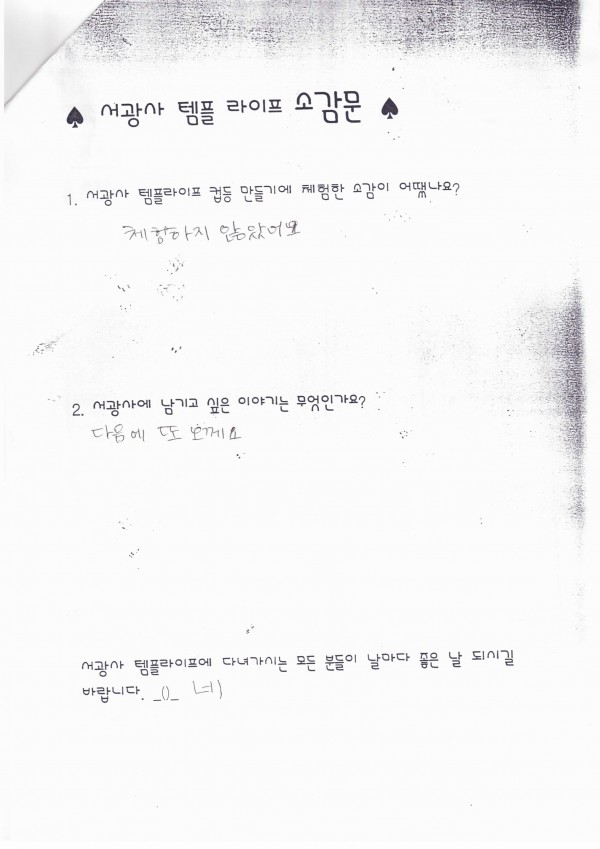 ♠ 서광사 템플 라이프 소감문 ♠
1. 서광사 템플라이프 컵등 만들기에 체험한 소감이 어땠나요?
체험하지 않았어요
2. 서광사에 남기고 싶은 이야기는 무엇인가요?
다음에 또 오께요
서광사 템플라이프에 다녀가시는 모든 분들이 날마다 좋은 날 되시길
바랍니다. _()_ 네